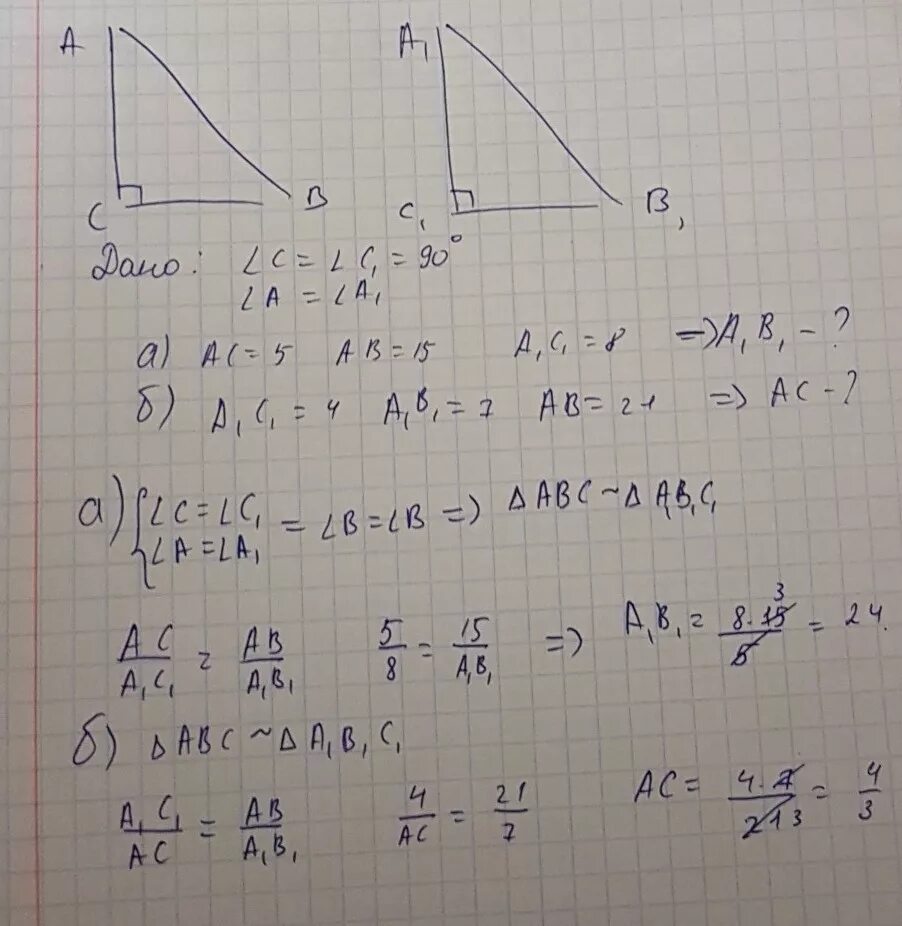 A A₁
C B C₁ B₁
Дано: ∠C = ∠C₁ = 90°
∠A = ∠A₁
а) AC = 5 AB = 15 A₁C₁ = 8 => A₁B₁ - ?
б) A₁C₁ = 4 A₁B₁ = 7 AB = 21 => AC - ?
а) { ∠C = ∠C₁ ∠A = ∠A₁ = ∠B = ∠B => ΔABC ~ ΔA₁B₁C₁
AC/A₁C₁ = AB/A₁B₁ 5/8 = 15/A₁B₁ => A₁B₁ = 8·15 3/5 = 24.
б) ΔABC ~ ΔA₁B₁C₁
A₁C₁/AC = AB/A₁B₁ 4/AC = 21/7 AC = 4·7/21 3 = 4/3